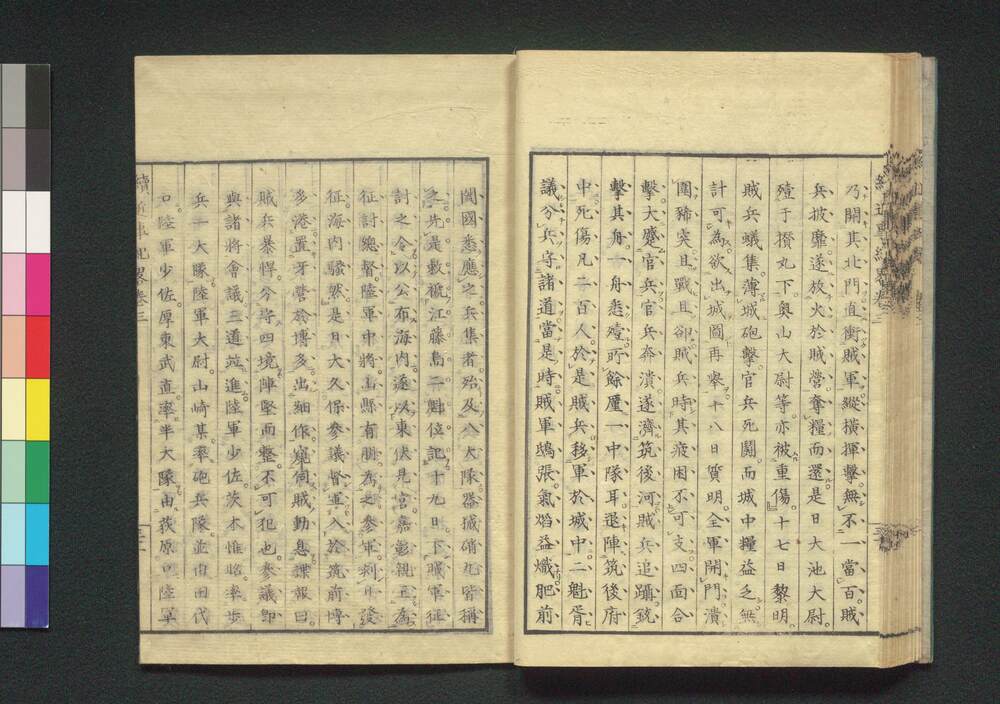 乃開其北門直衝賊軍縱橫揮擊無不一當百賊
兵披靡遂放火於賊營奪糧而還是日大池大尉
殪于攅丸下奥山大尉等亦被重傷十七日黎明
賊兵蟻集薄城砲擊官兵死鬪而城中糧益乏無
計可為欲出城圖再舉十八日質明全軍開門潰
圍豨突且戰且卻賊兵時其疲困不可支四面合
擊大蹙官兵官兵奔潰遂濟筑後河賊兵追躡銃
擊其舟一舟悉殪所餘厪一中隊耳退陣筑後府
中死傷凡二百人於是賊兵移軍於城中二魁胥
議分兵守諸道當是時賊軍鴟張氣焰益熾肥前
闔國悉應之兵集者殆及八大隊器械硝丸皆稱
之先是敕褫江藤島二魁位記十九日下暴軍征
討之令以公布海内逶以東伏見宮嘉彰親王為
征討總督陸軍中將山縣有朋為之參軍刻日發
征海内騷然是日大久保參議督軍入於筑前博
多港置牙營於博多出細作窺伺賊動息諜報曰
賊兵暴悍分守四境陣堅而整不可犯也參議即
與諸將會議三道竝進陸軍少佐茨木惟昭率步
兵一大隊陸軍大尉山崎某率砲兵隊竝由田代
口陸軍少佐厚東武直率半大隊由荻原口陸軍
卷三